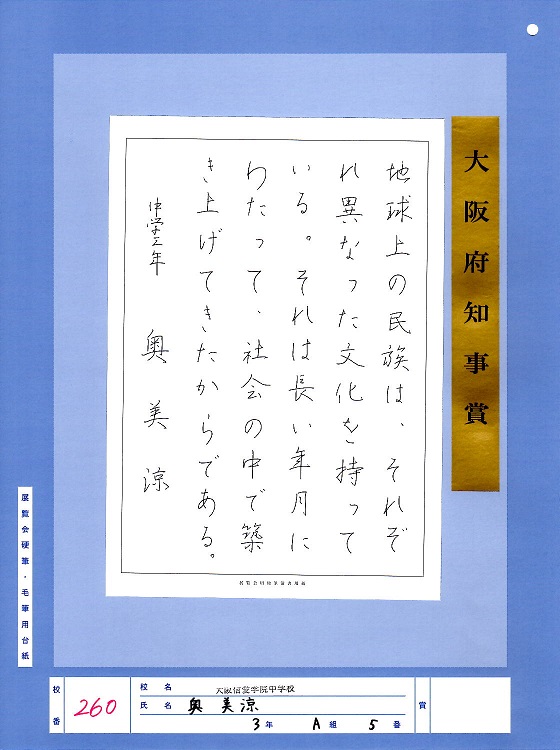 大阪府知事賞
地球上の民族は、それぞ
れ異なった文化を持って
いる。それは長い年月に
わたって、社会の中で築
き上げてきたからである。
中学三年 奥美涼
展覧会硬筆・毛筆用台紙
校番 260
校名 大阪信愛学院中学校
氏名 奥 美涼
3年 A組 5番
賞